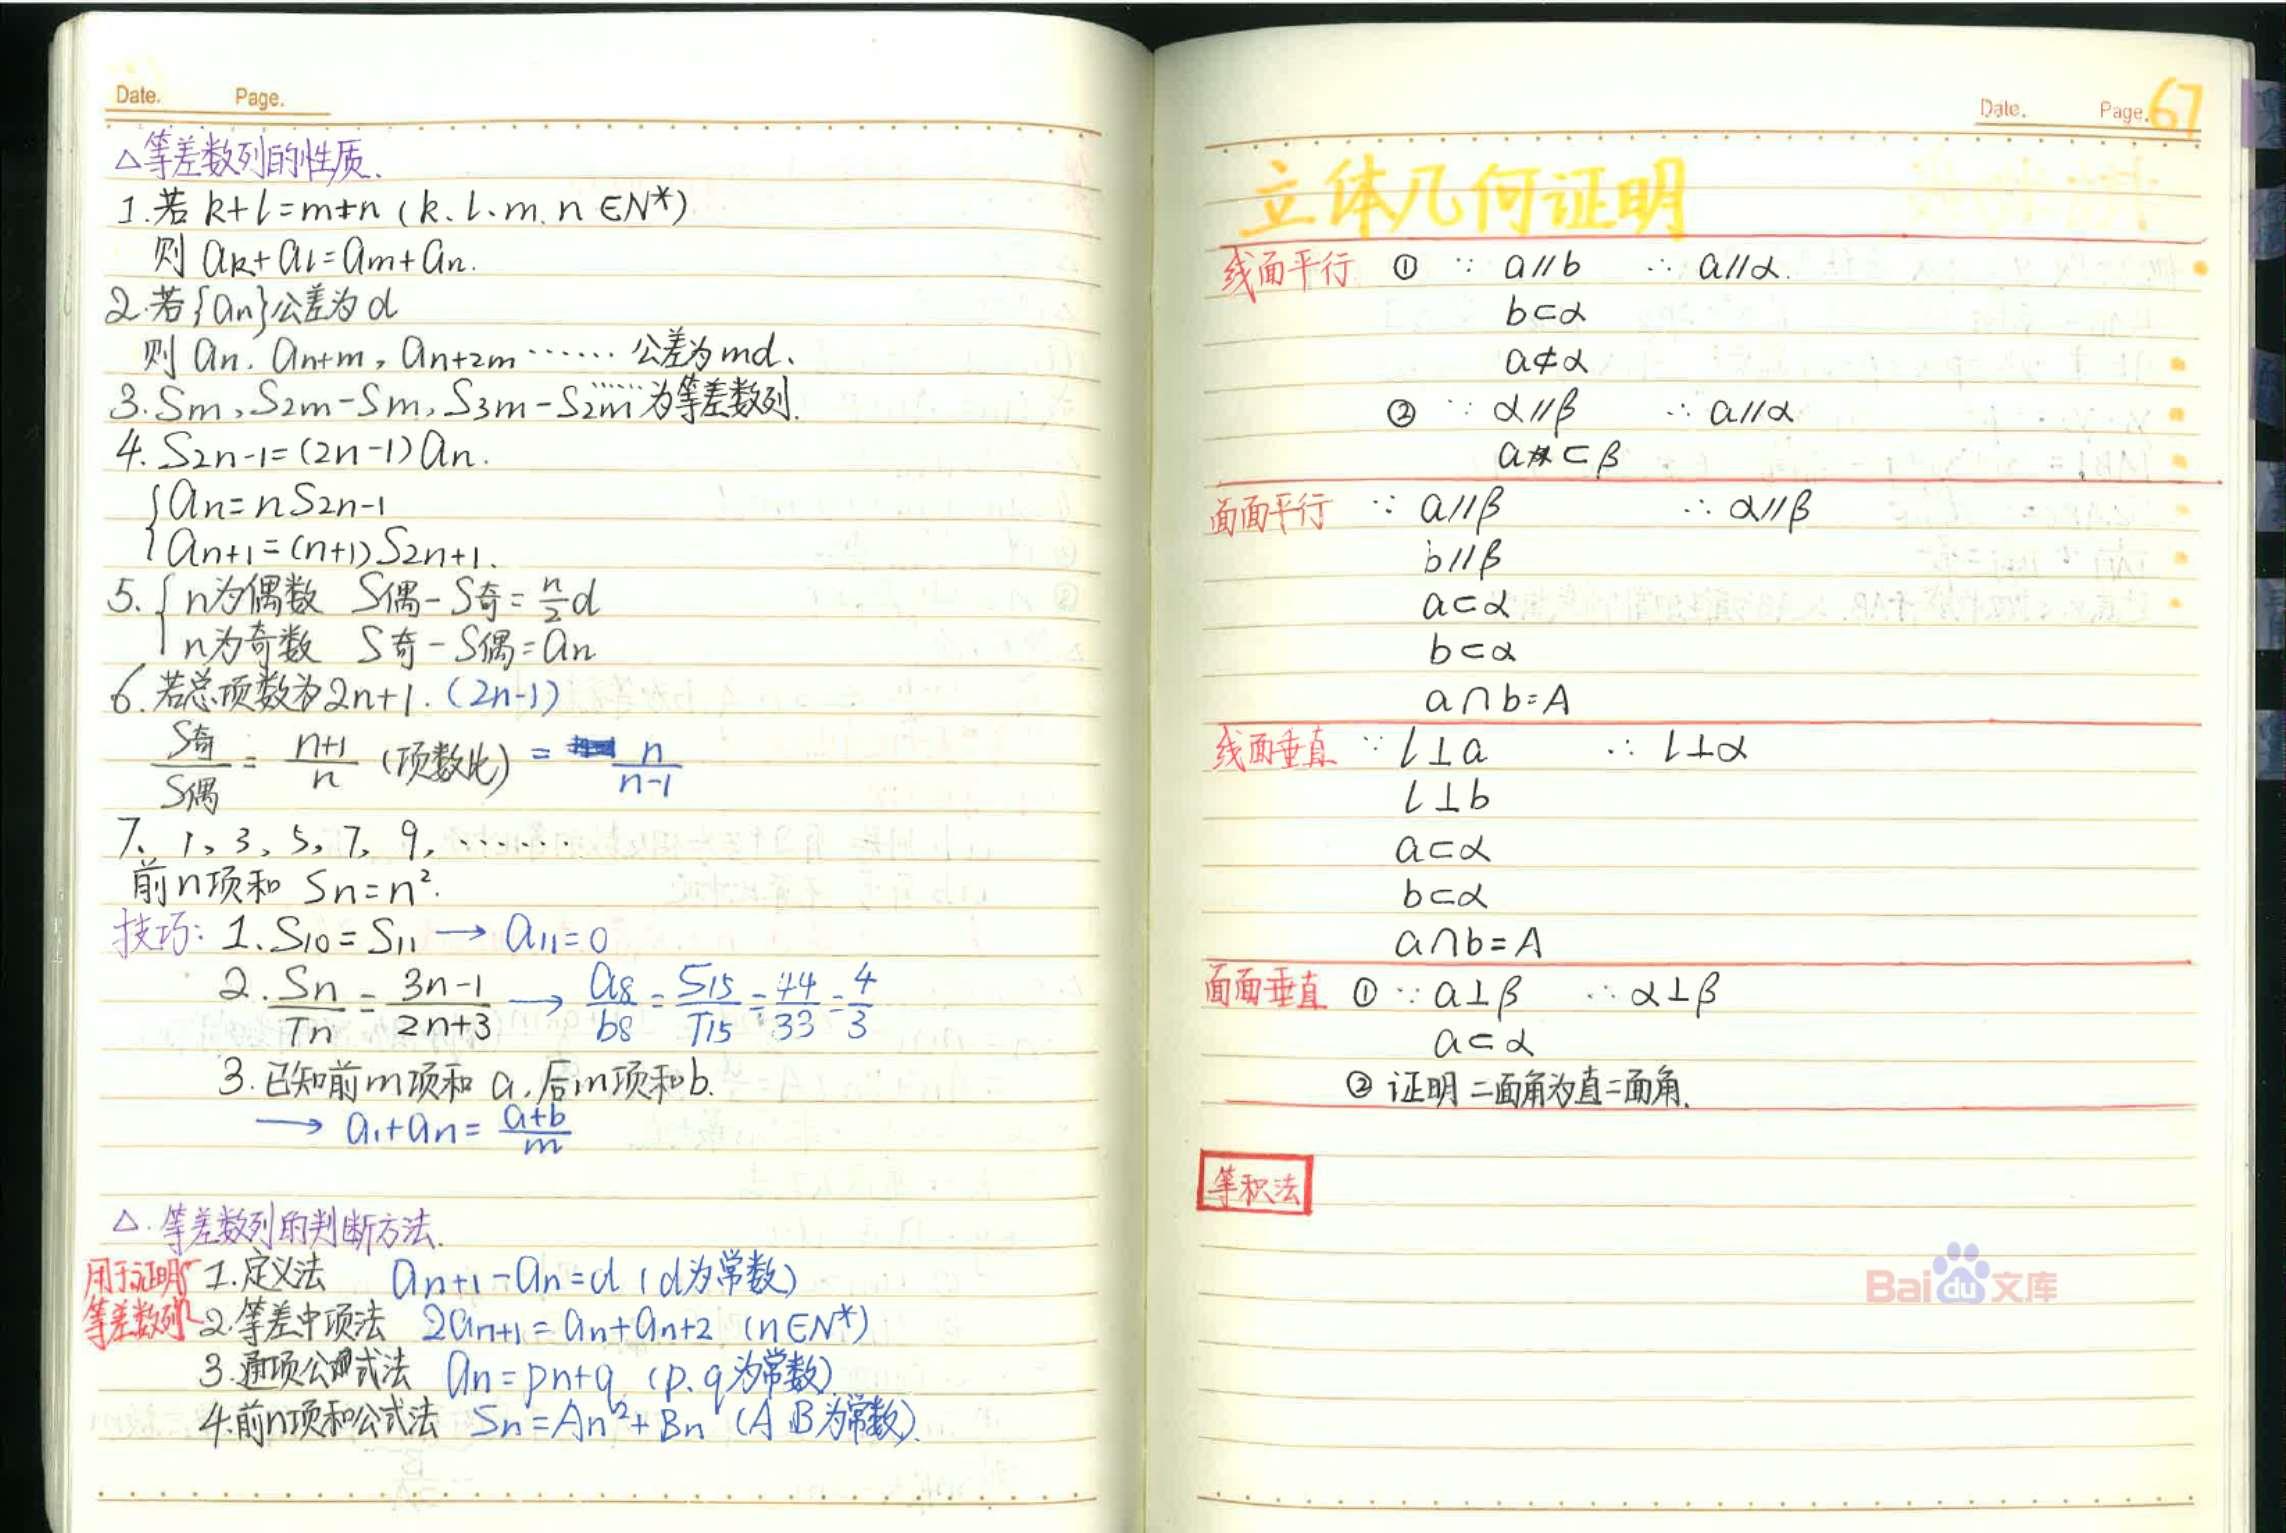 Date. Page.
△等差数列的性质.
1.若 k+l=m+n (k、l、m、n∈N*)
则 ak+al=am+an.
2.若{an}公差为d
则 an, an+m, an+2m …… 公差为md、
3.Sm、S2m-Sm, S3m-S2m……为等差数列.
4. S2n-1=(2n-1)an.
{an=nS2n-1
an+1=(n+1)S2n+1.
5. {n为偶数 S偶-S奇=n/2 d
n为奇数 S奇-S偶=an
6.若总项数为2n+1. (2n-1)
S奇/S偶 = n+1/n (项数比) = n/n-1
7、1、3、5、7、9、……
前n项和 Sn=n².
技巧: 1、S10=S11 → a11=0
2. Sn/Tn = 3n-1/2n+3 → a8/b8 = S15/T15 = 44/33 = 4/3
3.已知前m项和 a,后m项和b.
→ a1+an= a+b/m
△.等差数列的判断方法.
用于证明 1.定义法 an+1-an=d (d为常数)
等差数列 2.等差中项法 2an+1=an+an+2 (n∈N*)
3.通项公式法 an=pn+q (p、q为常数)
4.前n项和公式法 Sn=An²+Bn (A B为常数).
Date. Page. 67
立体几何证明
线面平行 ① ∵ a//b ∴ a//α.
b⊂α
a⊄α
② ∵ α//β ∴ a//α
a⊂β
面面平行 ∵ a//β ∴ α//β
b//β
a⊂α
b⊂α
a∩b=A
线面垂直 ∵ l⊥a ∴ l⊥α
l⊥b
a⊂α
b⊂α
a∩b=A
面面垂直 ① ∵ a⊥β ∴ α⊥β
a⊂α
② 证明二面角为直二面角.
等积法
Baidu文库